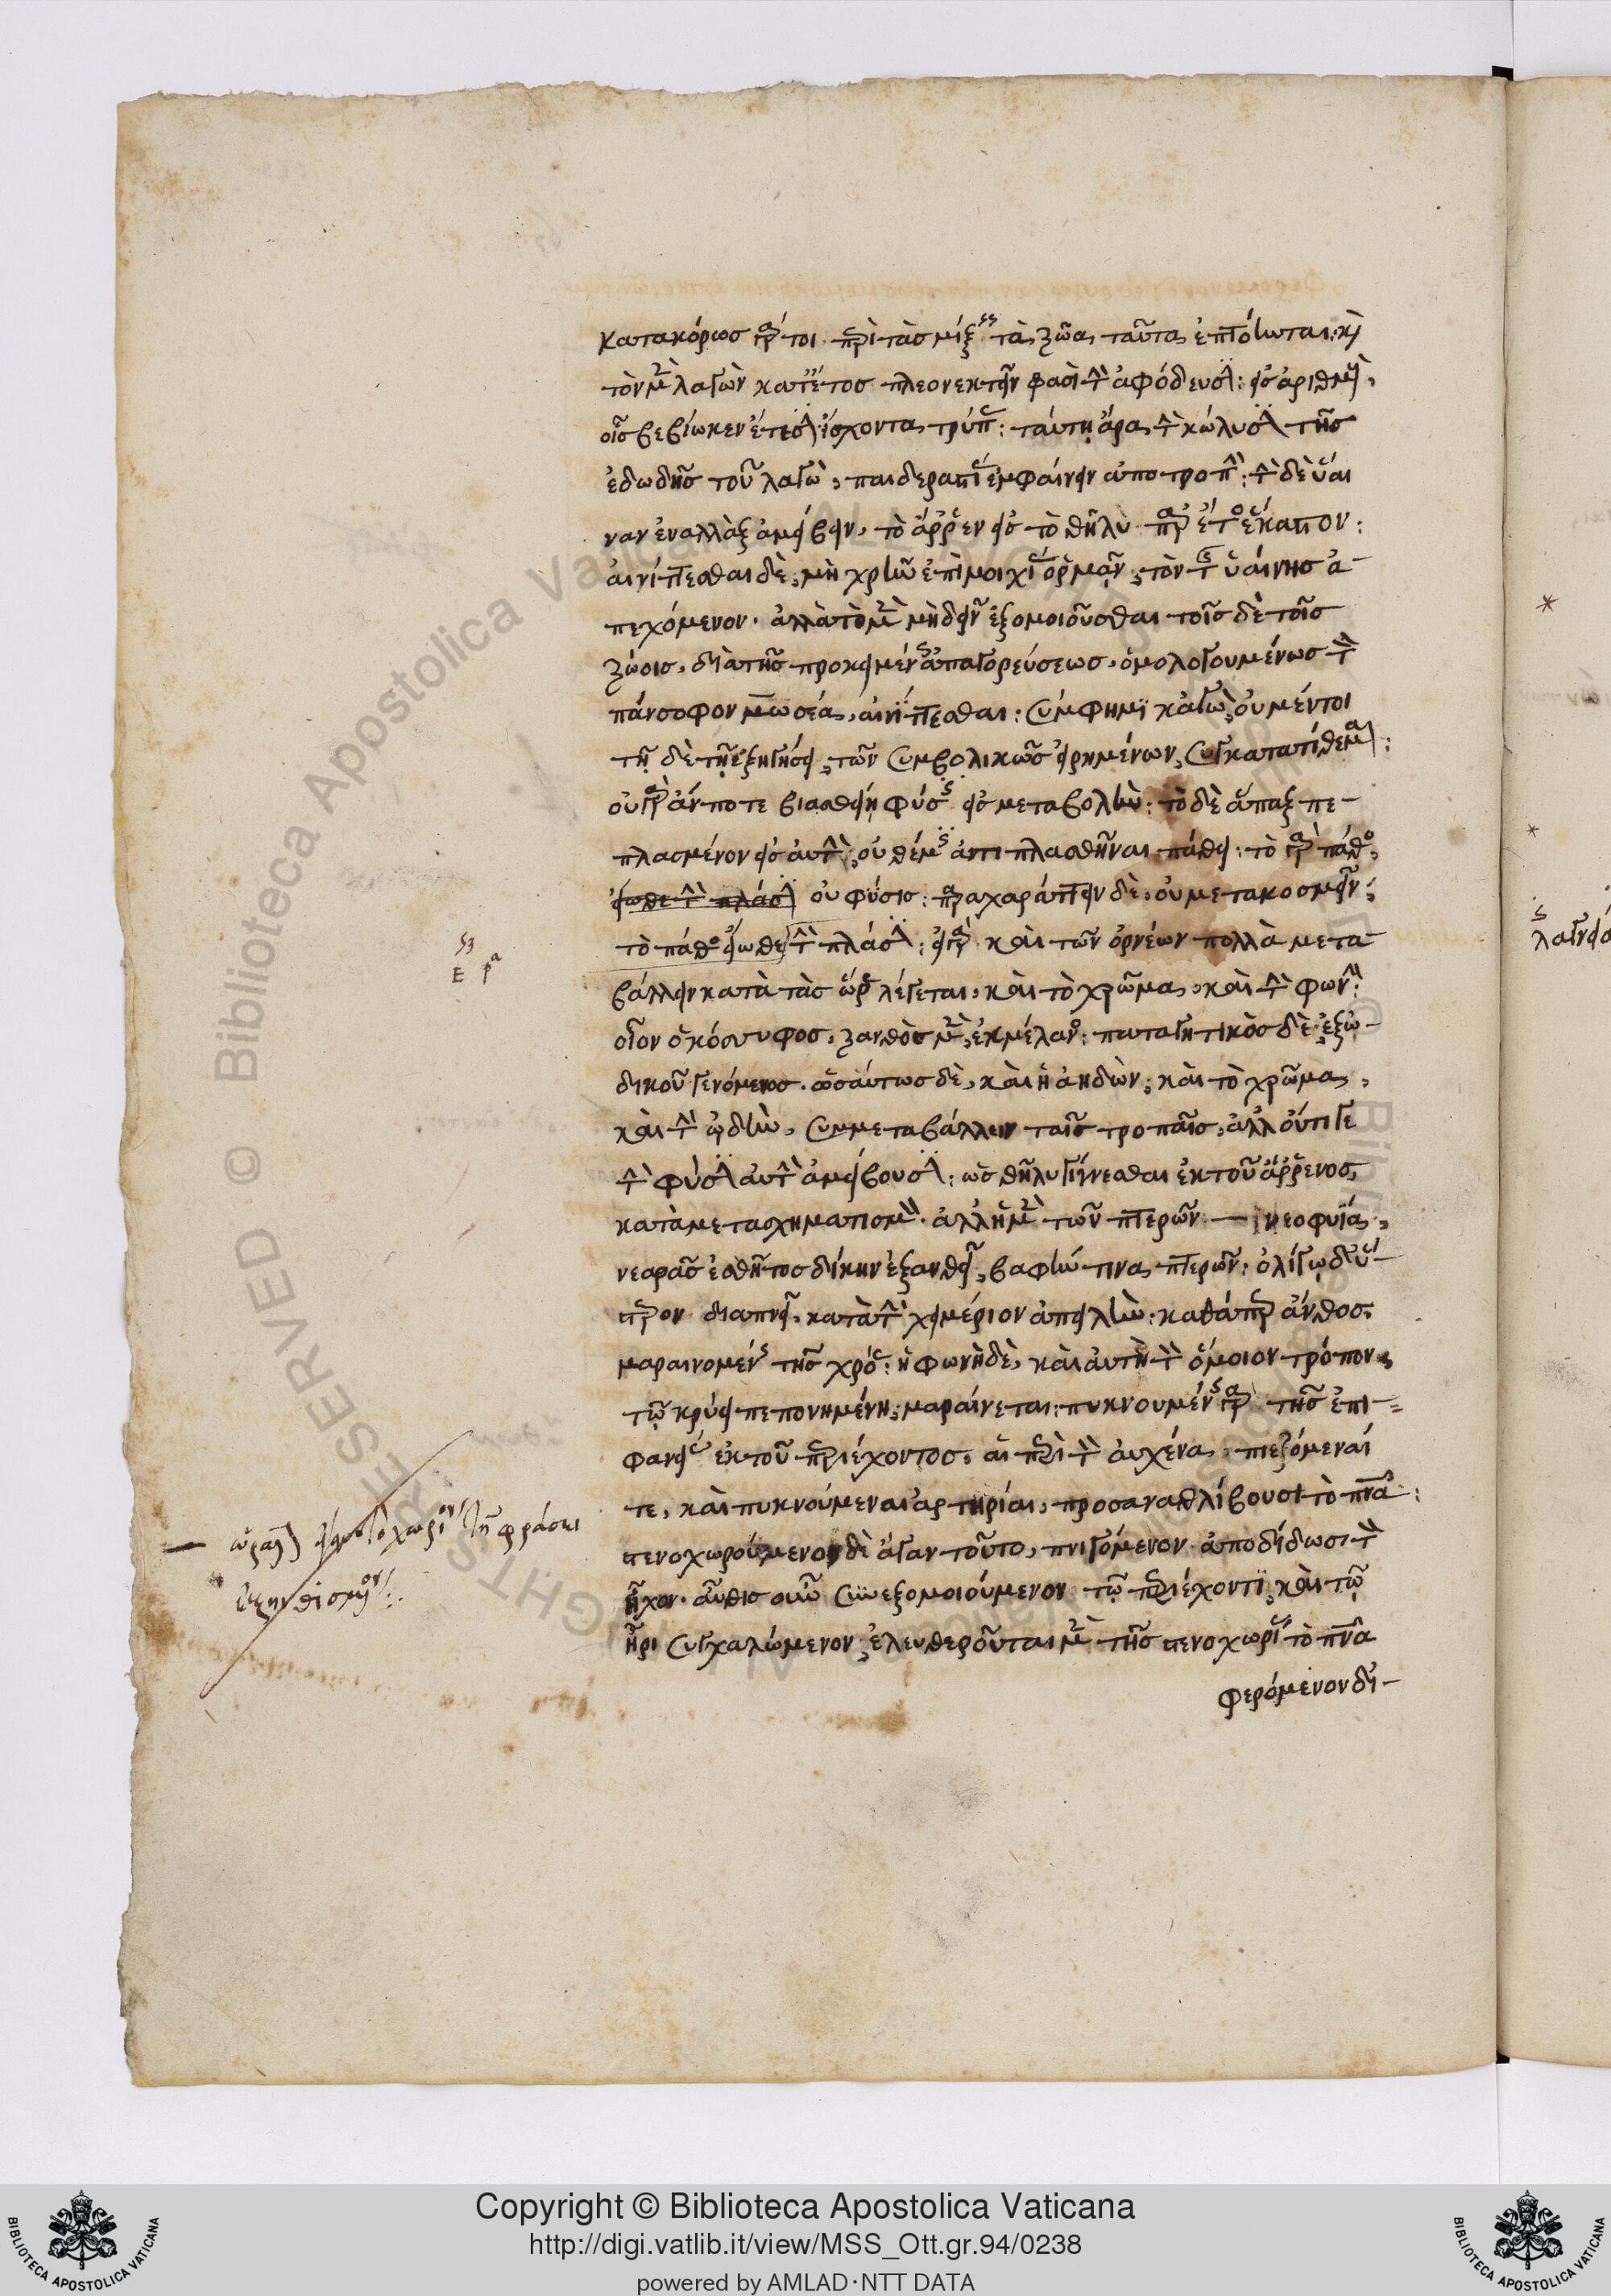 κατακόρως γάρ τοι περὶ τὰς μίξεις τὰ ζῶα ταῦτα ἐπτόηνται: καὶ
τὸν μὲν λαγὼν κατ' ἔτος πλεονεκτεῖν φασὶ τὴν ἀφόδευσιν: εἰς ἀριθμῶν,
οἷς βεβίωκεν ἔτεσιν ἴσχοντα τρύπας: ταύτη ἄρα τὴν κώλυσιν τῆς
ἐδωδῆς τοῦ λαγὼ, παιδεραστίας ἐμφαίνειν ἀποτροπήν: τὴν δὲ ὕαι
ναν ἐναλλὰξ ἀμείβειν, τὸ ἄρρεν εἰς τὸ θῆλυ παρ' ἔτος ἕκαστον:
αἰνίττεσθαι δὲ, μὴ χρῆν ἐπὶ μοιχείας ὁρμᾶν, τὸν τῆς ὑαίνης ἀ-
πεχόμενον. ἀλλὰ τὸ μὲν μὴ δεῖν ἐξομοιοῦσθαι τοῖσδε τοῖς
ζώοις, διὰ τῆς προκειμένης ἀπαγορεύσεως, ὁμολογουμένως τὸν
πάνσοφον μωσέα, αἰνίττεσθαι: σύμφημι κἀγὼ, οὐ μέντοι
τῇδε τῇ ἐξηγήσει, τῶν συμβολικῶς εἰρημένων, συγκατατίθεμαι:
οὐ γὰρ ἄν ποτε βιασθείη φύσις εἰς μεταβολὴν: τὸ δὲ ἅπαξ πε-
πλασμένον εἰς αὐτὴν, οὐ θέμις ἀντιπλασθῆναι πάθει: τὸ γὰρ πάθος,
εἴωθε τὴν πλάσιν οὐ φύσις: παραχαράττειν δὲ, οὐ μετακοσμεῖν:
τὸ πάθος εἴωθε τὴν πλάσιν: εἰ γὰρ καὶ τῶν ὀρνέων πολλὰ μετα-
βάλλειν κατὰ τὰς ὥρας λέγεται, καὶ τὸ χρῶμα, καὶ τὴν φωνήν:
οἷον ὁ κόσσυφος, ξανθὸς μὲν, ἐκ μέλανος: παταγητικὸς δὲ, ἐξ ᾠ-
δικοῦ γενόμενος. ὡσαύτως δὲ, καὶ ἡ ἀηδὼν, καὶ τὸ χρῶμα,
καὶ τὴν ᾠδὴν, συμμεταβάλλειν ταῖς τροπαῖς, ἀλλ' οὔτι γε
τὴν φύσιν αὐτὴν ἀμείβουσιν: ὡς θῆλυ γίννεσθαι ἐκ τοῦ ἄρρενος
κατὰ μετασχηματισμόν. ἀλλ' ἡ μὲν τῶν πτερῶν — νεοφυΐα,
νεαρᾶς ἐσθῆτος δίκην ἐξανθεῖ, βαφήν τινα πτερῶν: ὀλίγῳ δ' ὕσ-
τερον διαπνεῖ, κατὰ τὴν χειμέριον ἀπειλὴν: καθάπερ ἄνθος,
μαραινομένης τῆς χρόας: ἡ φωνὴ δὲ, καὶ αὐτὴ τὸν ὅμοιον τρόπον,
τῷ κρύει πεπονημένη, μαραίνεται: πυκνουμένης γὰρ τῆς ἐπι-
φανείας ἐκ τοῦ περιέχοντος, αἱ περὶ τὸν αὐχένα, πιεζόμεναί
τε, καὶ πυκνούμεναι ἀρτηρίαι, προσαναθλίβουσι τὸ πνα:
στενοχωρούμενον δὲ ἄγαν τοῦτο, πνιγόμενον ἀποδίδωσι τὸν
ἦχον. αὖθις οὖν συνεξομοιούμενον τῷ περιέχοντι, καὶ τῷ
ἦρι συγχαλώμενον, ἐλευθεροῦται μὲν τῆς στενοχωρίας τὸ πνα
φερόμενον δι-